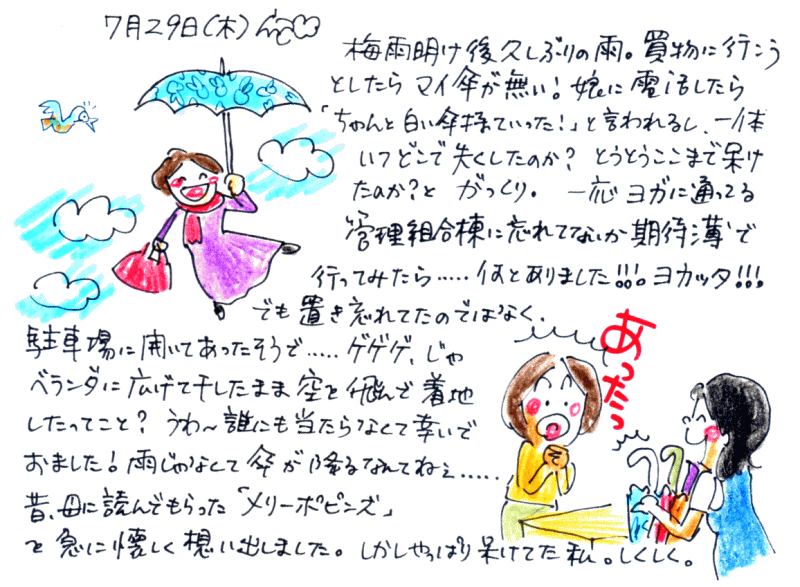 7月29日(木)
梅雨明け後久しぶりの雨。買物に行こう
としたらマイ傘が無い！娘に電話したら
「ちゃんと白い傘持ていった！」と言われるし、一体
いつどこで失くしたのか？とうとうここまで呆け
たのか？と がっくり。一応ヨガに通ってる
管理組合棟に忘れてないか期待薄で
行ってみたら……何とありました!!!。ヨカッタ!!!。
でも置き忘れてたのではなく、
駐車場に開いてあったそうで……ゲゲゲ、じゃ
ベランダに広げて干したまま空を飛んで着地
したってこと？うわ～誰にも当たらなくて幸いで
おました！雨じゃなくて傘が降るなんてねぇ……
昔、母に読んでもらった「メリーポピンズ」
を急に懐しく想い出しました。しかしやっぱり呆けてた私。しくしく。
あったっ